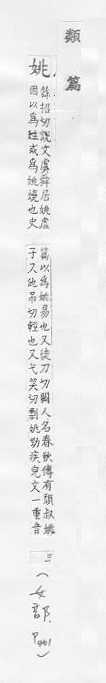 類篇
姚
餘招切說文虞舜居姚虛
因以爲姓或爲姚嬈也史
篇以爲姚易也又徒刀切闕人名春秋傳有頹叔姚
子又他吊切輕也又弋笑切剽姚勁疾皃文一重音
三
(女部. P461)